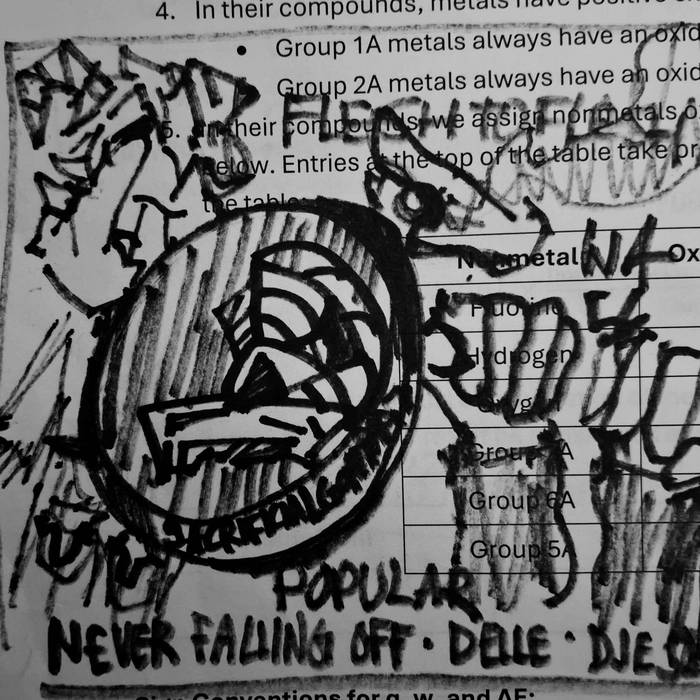 4. In their compounds, metals have positive
• Group 1A metals always have an oxid
Group 2A metals always have an oxid
FLESH TO
5. In their compounds, we assign nonmetals o
below. Entries at the top of the table take pr
the table
Nonmetal Ox
Fluorine
Hydrogen
Oxygen
Group 7A
Group 6A
Group 5A
SACRIFICIAL
POPULAR
NEVER FALLING OFF · DELLE · DJE
Conventions for q, w, and ΔE: